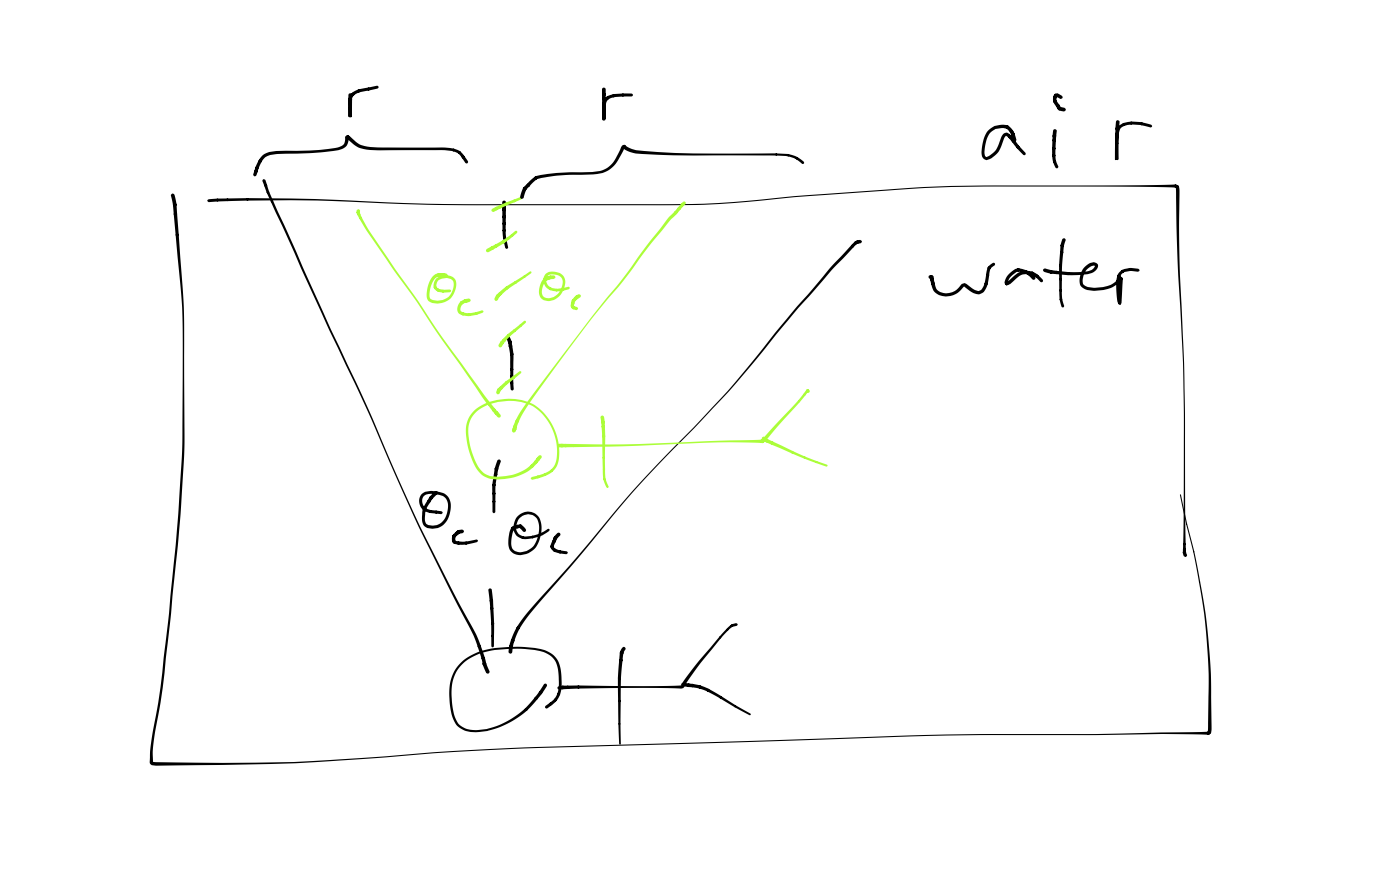 r r
air
water
θc θc
θc θc